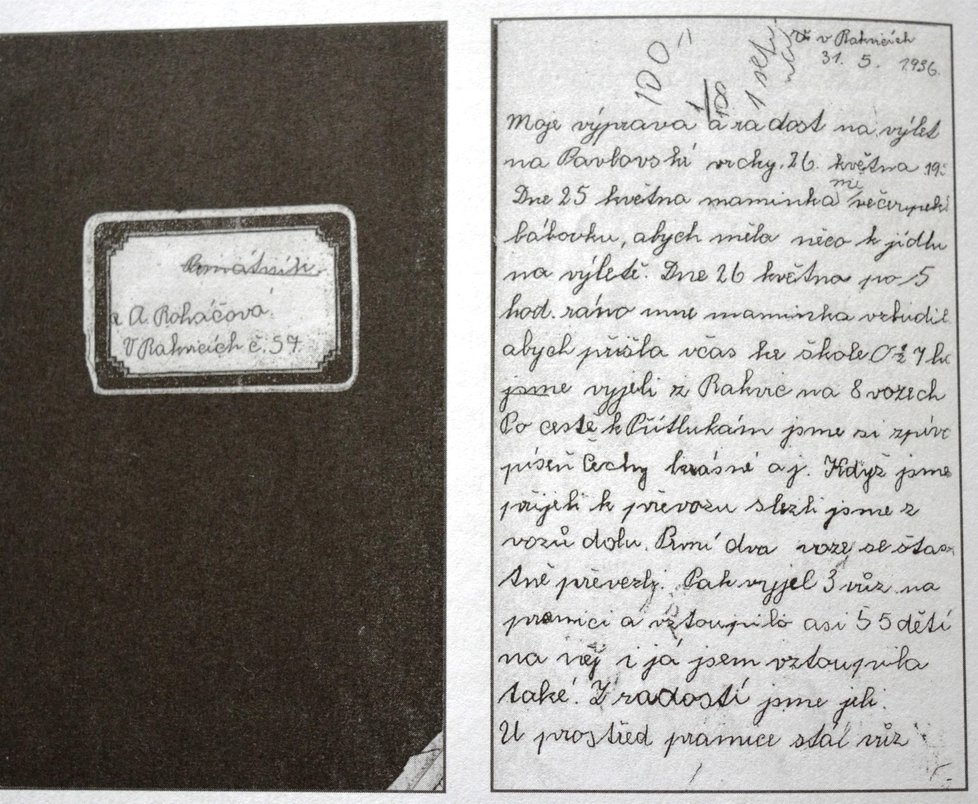 Památník
A. Roháčová
V Rakvicích č. 57.
100
1
100
1 seš
v Rakvicích
31. 5. 1936.
Moje výprava a radost na výlet
na Pavlovské vrchy. 26. května 19
Dne 25 května maminka mi večer pekl
bábovku, abych měla něco k jídlu
na výletě. Dne 26 května po 5
hod. ráno mne maminka vzbudil
abych přišla včas ke škole O ½ 7 h
jsme vyjeli z Rakvic na 8 vozech
Po cestě k Přítlukám jsme si zpív
píseň Čechy krásné a j. Když jsme
přijeli k převozu slezli jsme z
vozů dolu. První dva voze se šťas
tně převezly. Pak vyjel 3 vůz na
pramici a vztoupilo asi 55 dětí
na něj i já jsem vztoupila
také. Z radostí jsme jeli.
U prostřed pramice stál vůz